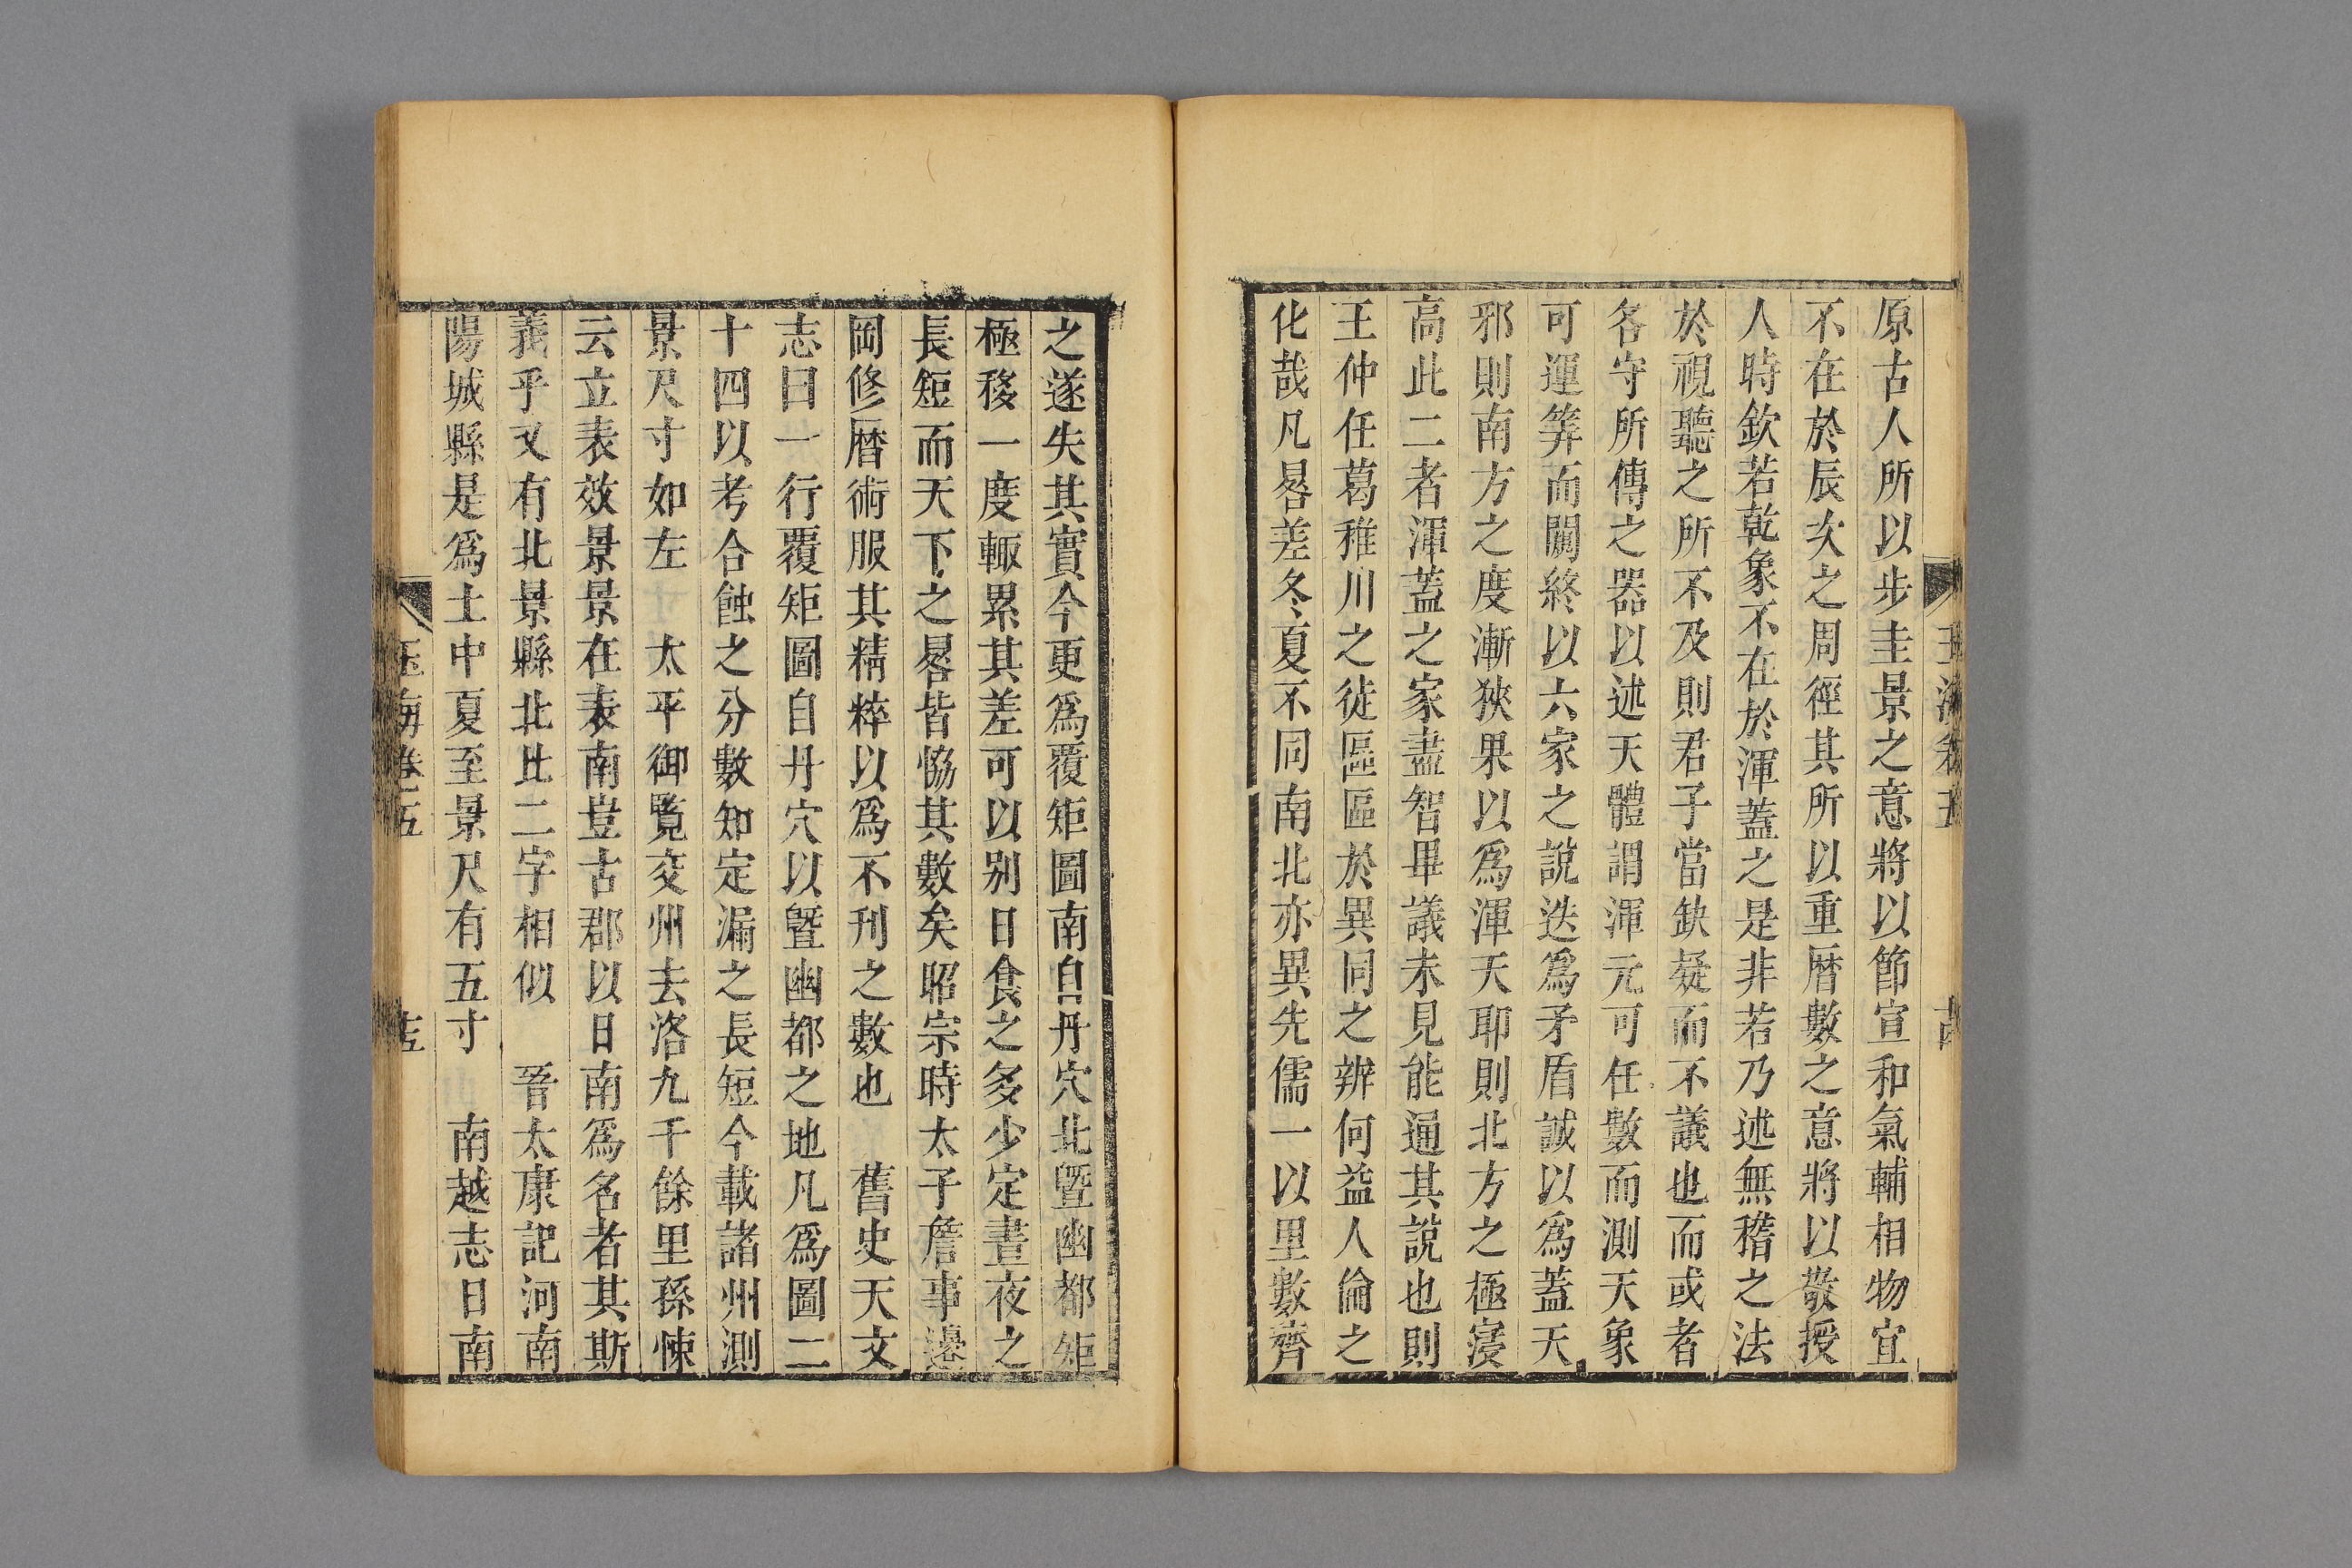 玉海卷五
原古人所以步圭景之意將以節宣和氣輔相物宜
不在於辰次之周徑其所以重曆數之意將以敬授
人時欽若乾象不在於渾蓋之是非若乃述無稽之法
於視聽之所不及則君子當缺疑而不議也而或者
各守所傳之器以述天體謂渾元可任數而測天象
可運筭而闚終以六家之說迭爲矛盾誠以爲蓋天
邪則南方之度漸狹果以爲渾天耶則北方之極寖
高此二者渾蓋之家盡智畢議未見能通其說也則
王仲任葛稚川之徒區區於異同之辨何益人倫之
化哉凡晷差冬夏不同南北亦異先儒一以里數齊
之遂失其實今更爲覆矩圖南自丹穴北曁幽都矩
極移一度輙累其差可以别日食之多少定晝夜之
長短而天下之晷皆恊其數矣昭宗時太子詹事邊
岡修曆術服其精粹以爲不刋之數也　舊史天文
志曰一行覆矩圖自丹穴以曁幽都之地凡爲圖二
十四以考合蝕之分數知定漏之長短今載諸州測
景尺寸如左　太平御覽交州去洛九千餘里孫悚
云立表效景景在表南豈古郡以日南爲名者其斯
義乎又有北景縣北比二字相似　晉太康記河南
陽城縣是爲土中夏至景尺有五寸　南越志日南
玉海卷五